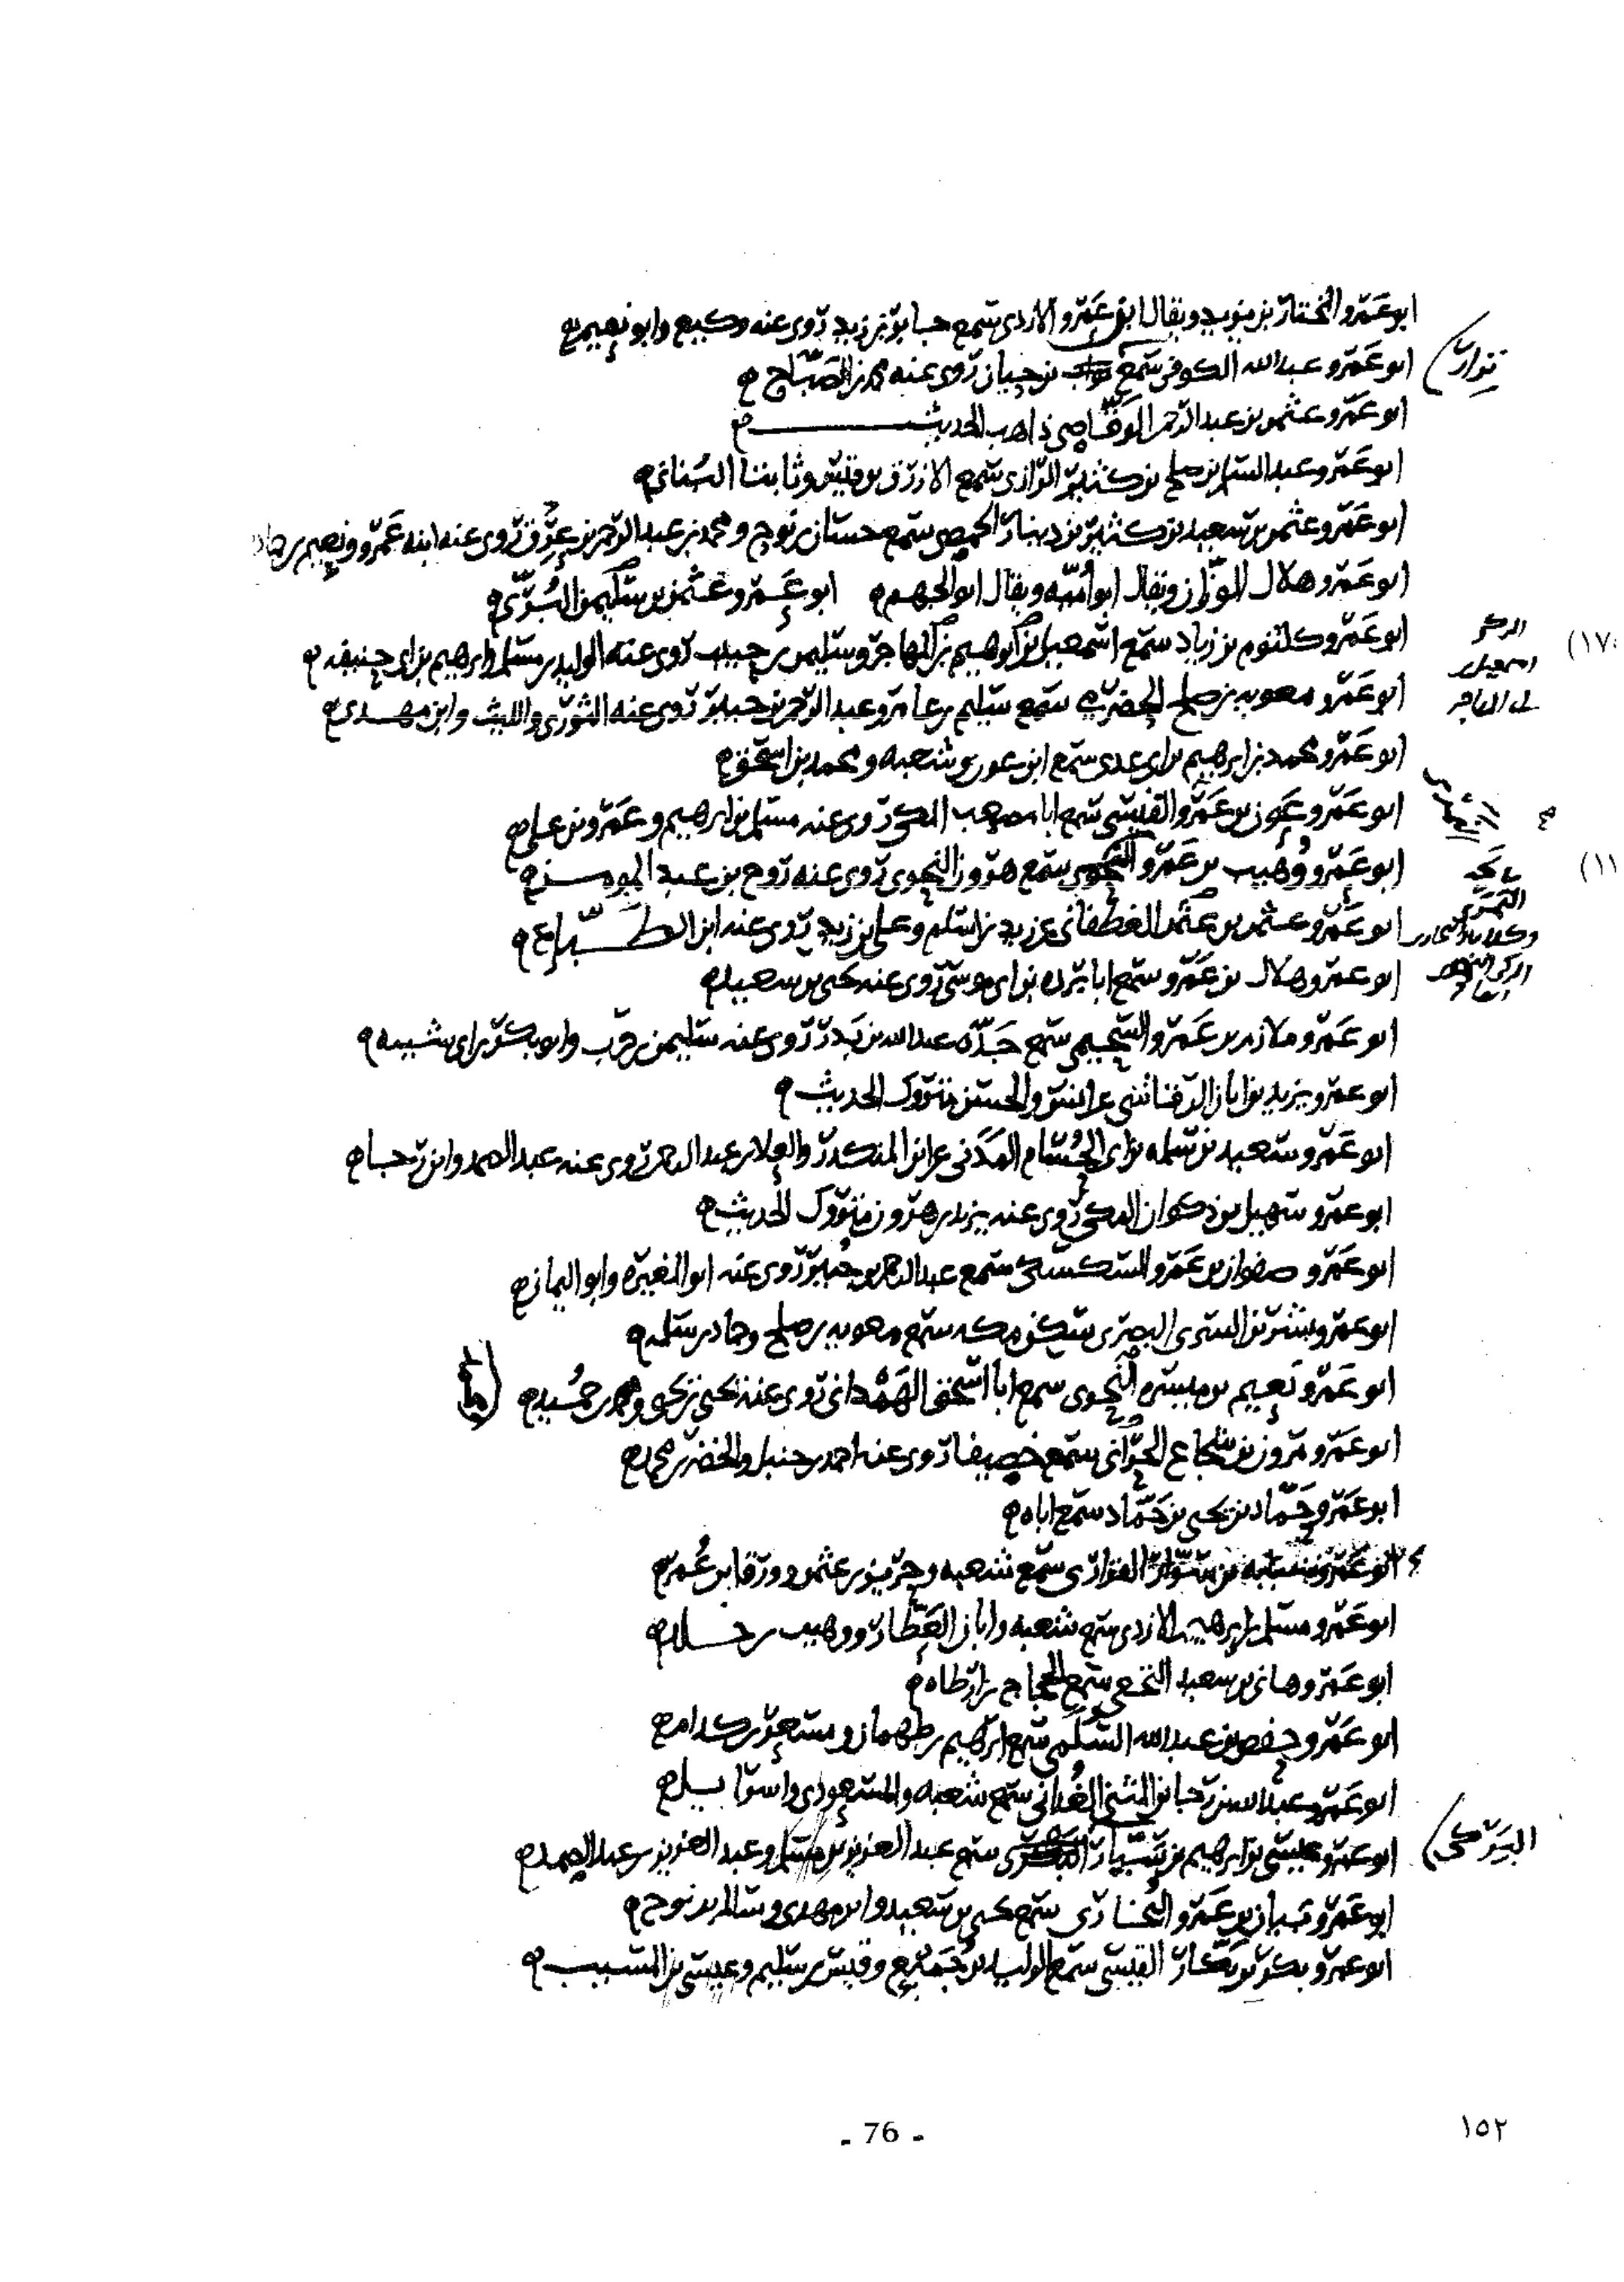 ابو عمرو المختار بن يزيد ويقال ابو عمرو الازدى سمع جابر بن زيد روى عنه وكيع وابو نعيم
ابو عمرو عبد الله الكوفى سمع بن حيان روى عنه محمد بن الصباح
ابو عمرو عثمن بن عبد الرحمن الوقاصى ذاهب الحديث
ابو عمرو عبد السلم بن صلح بن كثير الرازى سمع الازرق بن قيس وثابتا البنانى
ابو عمرو عثمن بن سعيد بن كثير بن دينار الحمصى سمع حسان بن نوح ومحمد بن عبد الرحمن بن عرق روى عنه ابنه عمرو ونعيم بن حماد
ابو عمرو هلال الوزان ويقال ابو امية ويقال ابو الجهم ابو عمرو عثمن بن سليمن البرى
ابو عمرو كلثوم بن زياد سمع اسمعيل بن ابرهيم بن المهاجر وسليمن بن حبيب روى عنه الوليد بن مسلم وابرهيم بن ابى حنيفه
ابو عمرو معويه بن صلح الحضرمى سمع سليم بن عامر وعبد الرحمن بن جبير روى عنه الثورى والليث وابن مهدى
ابو عمرو محمد بن ابرهيم بن ابى عدى سمع ابن عون وشعبه ومحمد بن اسحق
ابو عمرو عون بن عمرو القيسى سمع ابا مصعب المكى روى عنه مسلم بن ابرهيم وعمرو بن على
ابو عمرو وهيب بن عمرو النحوى سمع هرون النحوى روى عنه روح بن عبد المومن
ابو عمرو عثمن بن عثمن الغطفانى عن زيد بن اسلم وعلى بن زيد روى عنه ابن الطباع
ابو عمرو هلال بن عمرو سمع ابا برده بن ابى موسى روى عنه يحيى بن سعيد
ابو عمرو ملازم بن عمرو السحيمى سمع جده عبد الله بن بدر روى عنه سليمن بن حرب وابو بكر بن ابى شيبه
ابو عمرو يزيد بن ابان الرقاشى عن انس والحسن متروك الحديث
ابو عمرو سعيد بن سلمه بن ابى الحسام المدنى عن ابن المنكدر والعلا بن عبد الرحمن روى عنه عبد الصمد وابن رجا
ابو عمرو سهيل بن ذكوان المكى روى عنه يزيد بن هرون متروك الحديث
ابو عمرو صفوان بن عمرو السكسكى سمع عبد الرحمن بن جبير روى عنه ابو المغيره وابو اليمان
ابو عمرو بشر بن السرى البصرى سكن مكه سمع معويه بن صلح وحماد بن سلمه
ابو عمرو نعيم بن ميسره النحوى سمع ابا اسحق الهمدانى روى عنه يحيى بن يحيى ومحمد بن حميد
ابو عمرو مرون بن شجاع الحرانى سمع خصيفا روى عنه احمد بن حنبل والخضر بن محمد
ابو عمرو حماد بن يحيى بن حماد سمع اباه
ابو عمرو شبابه بن سوار الفزارى سمع شعبه وحريز بن عثمن وورقا بن عمر
ابو عمرو مسلم بن ابرهيم الازدى سمع شعبه وابان العطار ووهيب بن خلد
ابو عمرو هانى بن سعيد النخعى سمع الحجاج بن ارطاه
ابو عمرو حفص بن عبد الله السلمى سمع ابرهيم بن طهمان ومسعر بن كدام
ابو عمرو عبد الله بن رجا بن المثنى الغدانى سمع شعبه والمسعودى واسرايل
ابو عمرو عيسى بن ابرهيم بن سيار سمع عبد العزيز بن مسلم وعبد العزيز بن عبد الصمد
البركى
ابو عمرو بيان بن عمرو البخارى سمع يحيى بن سعيد وابن مهدى وسالم بن نوح
ابو عمرو بكر بن بكار القيسى سمع الوليد بن جميع وقيس بن سليم وعيسى بن المسيب
- 76 -
١٥٢